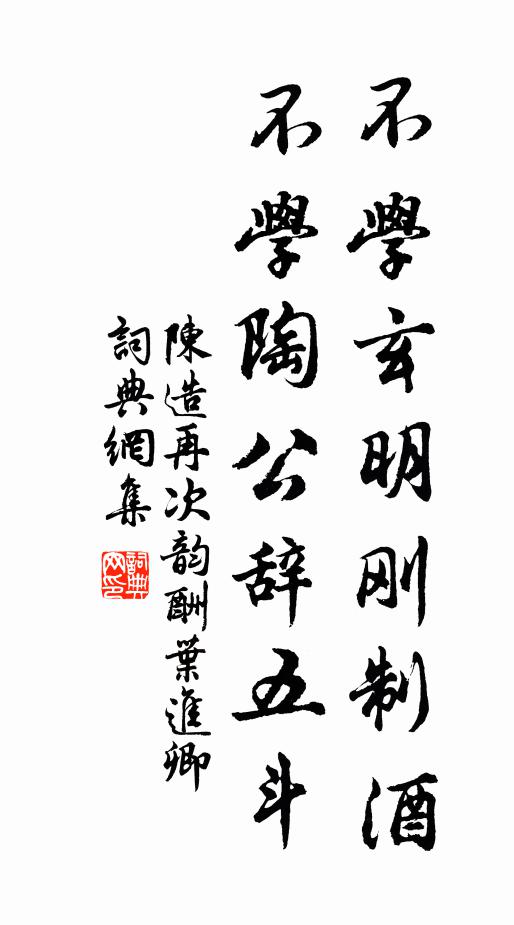 不學玄明刚制酒
不學陶公辞五斗
陳造再次韵酬葉進卿
詞典網集
詞典网印